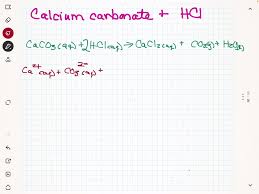 Calcium carbonate + HCl
CaCO3(aq) + 2HCl(aq) → CaCl2(aq) + CO2(g) + H2O(l)
Ca2+(aq) + CO3 2-(aq) +